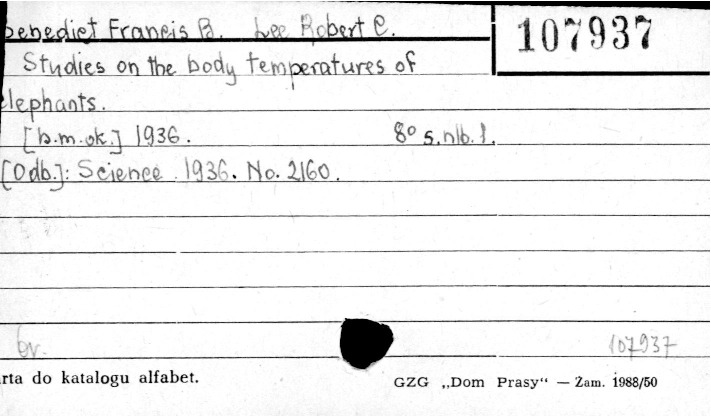 Benedict Francis B. Lee Robert C.
107937
Studies on the body temperatures of
elephants.
[b.m.ok.] 1936. 8° s.nlb.1.
[Odb.]: Science 1936. No. 2160.
br.
107937
rta do katalogu alfabet.
GZG „Dom Prasy“ — Zam. 1988/50